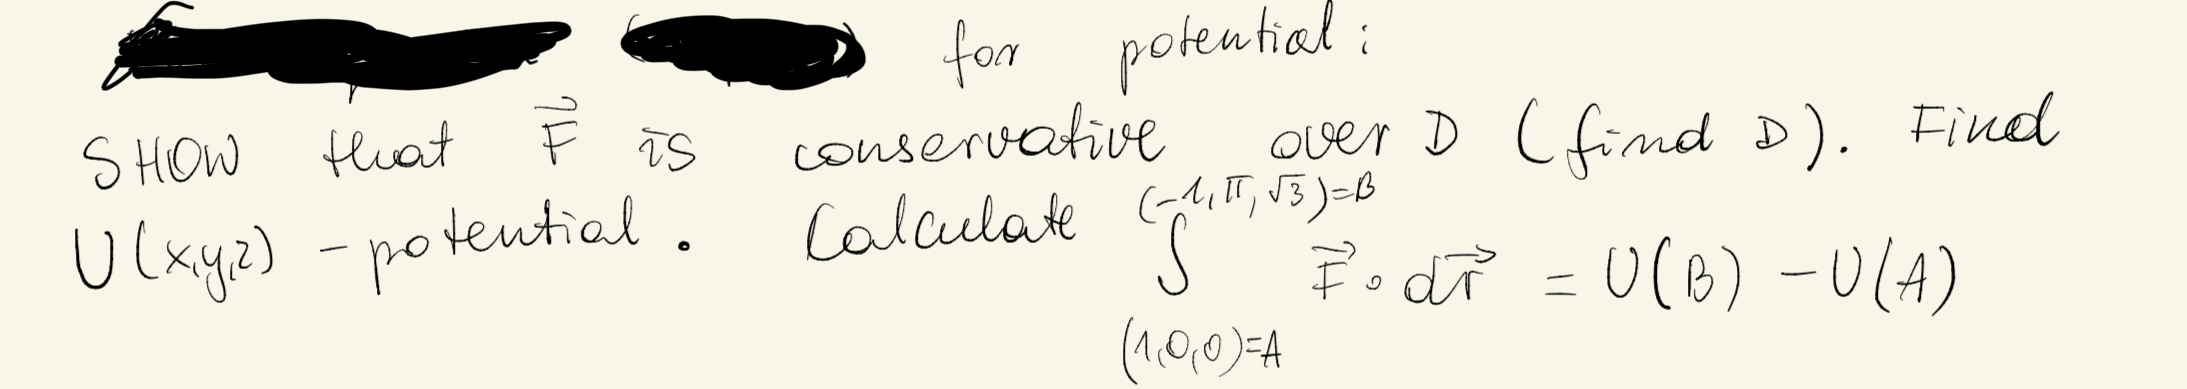 for potential:
SHOW that F⃗ is conservative over D (find D). Find
U(x,y,z) - potential. Calculate ∫_{(1,0,0)=A}^{(-1,π,√3)=B} F⃗ ∘ dr⃗ = U(B) - U(A)